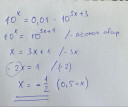 10^x = 0,01 · 10^(3x+3)
10^x = 10^(3x+1) /
x = 3x + 1 /-3x
-2x = 1 /:(-2)
x = -1/2 (0,5=x)